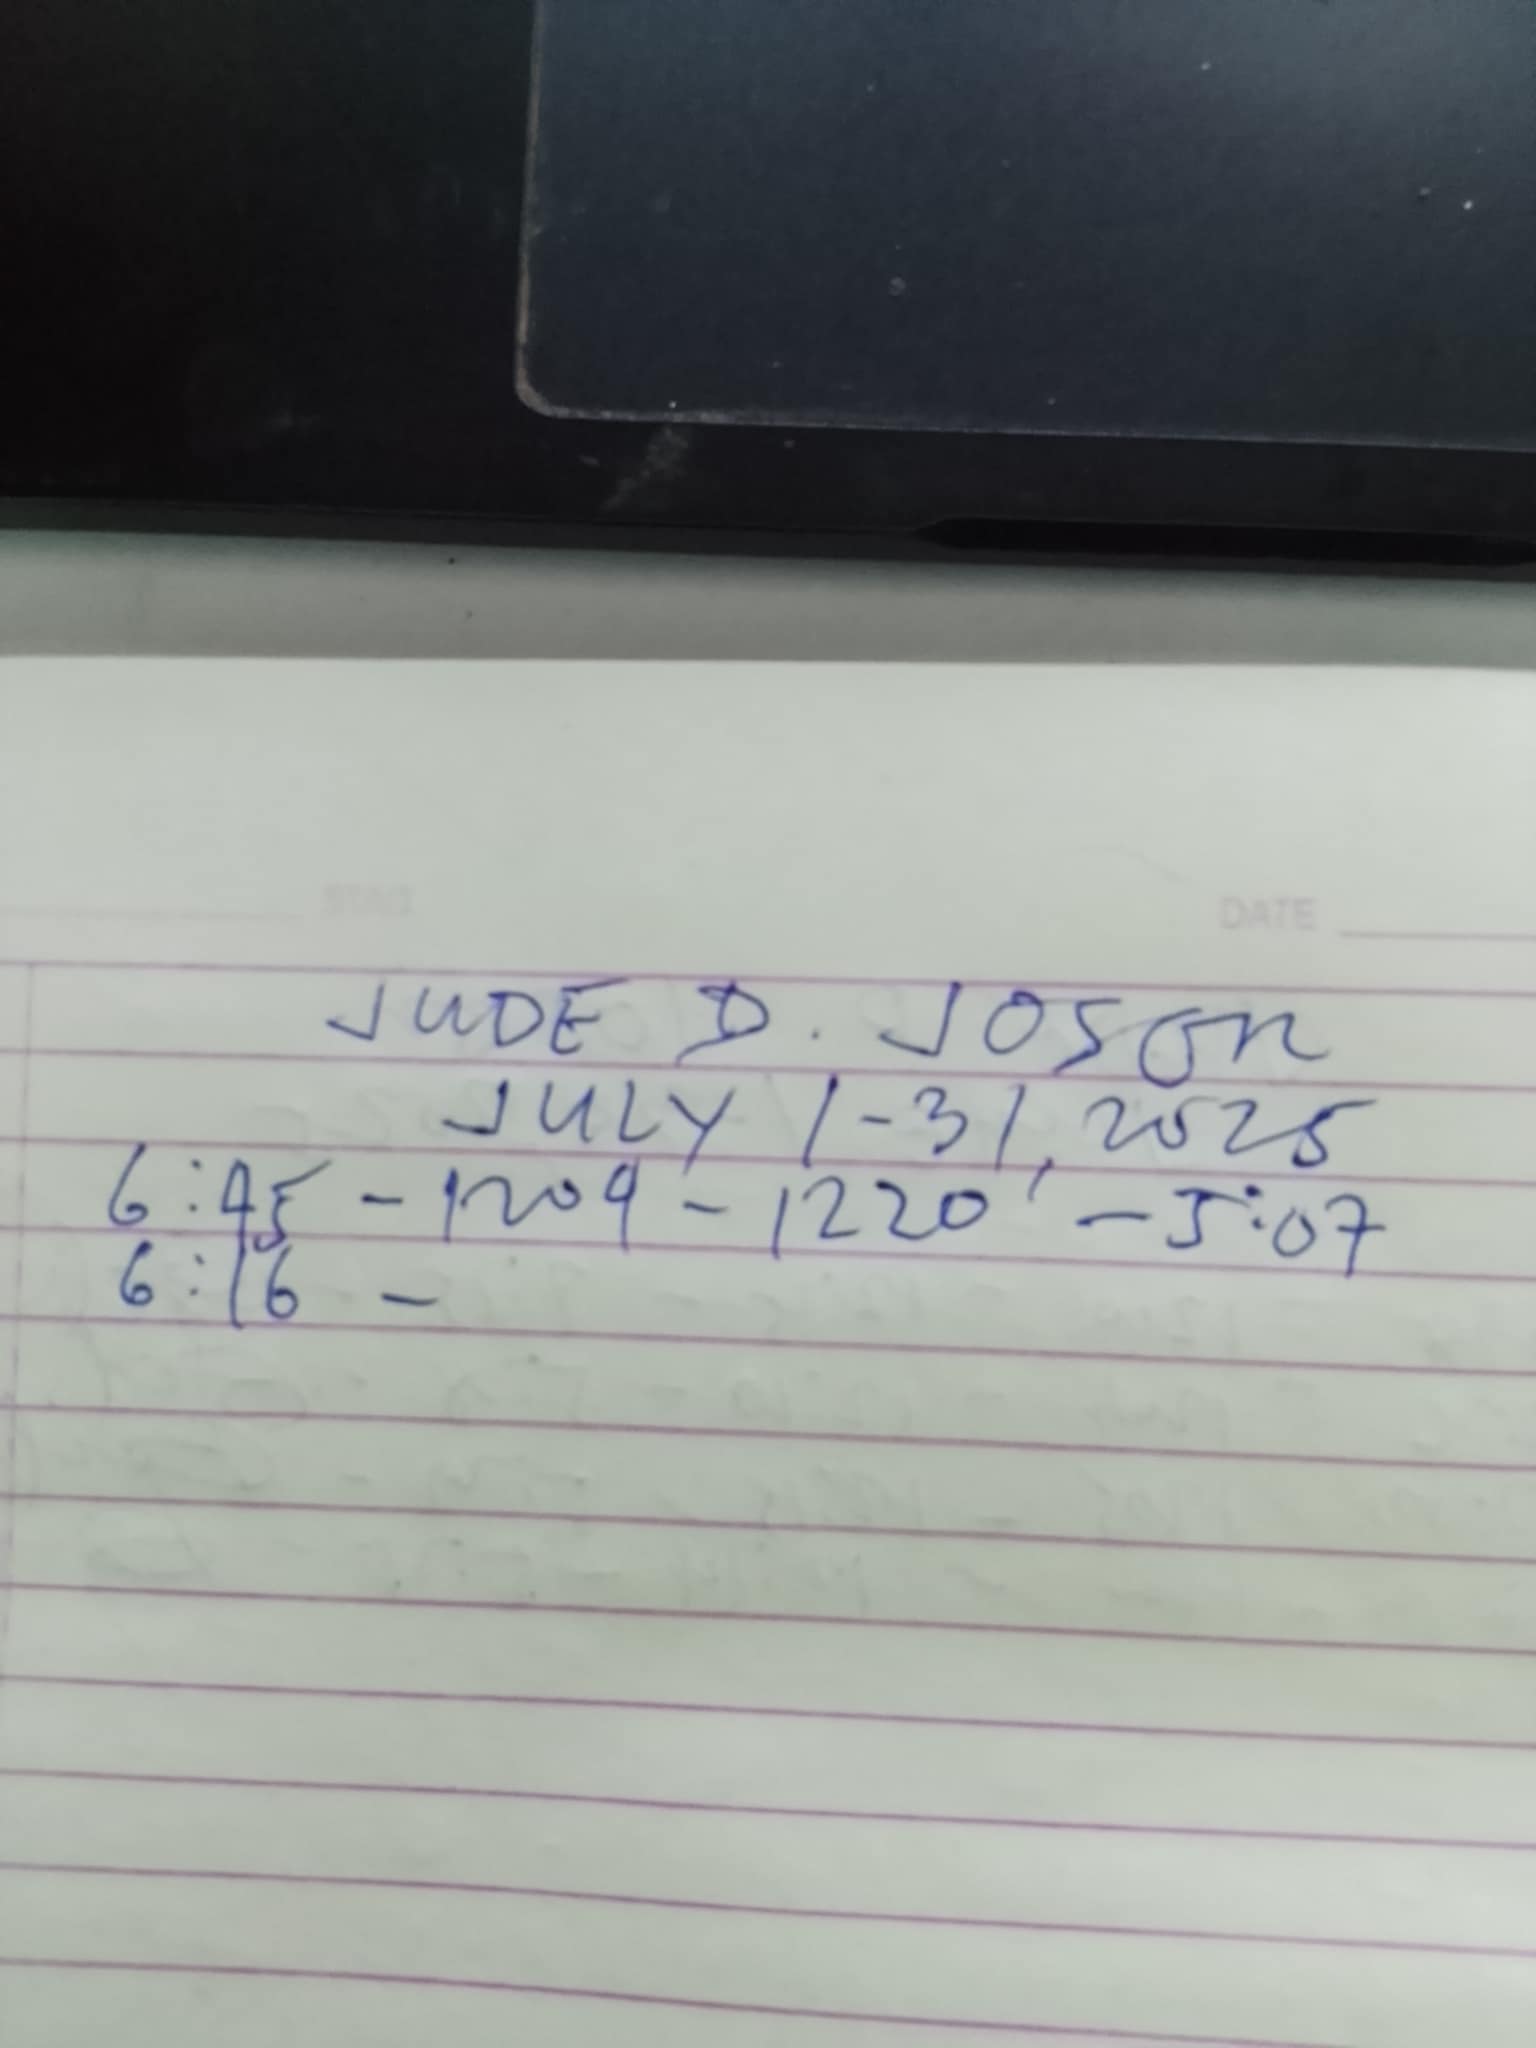 DATE
JUDE D. JOSON
JULY 1-31, 2025
6:45 - 1209 - 1220 - 5:07
6:16 -